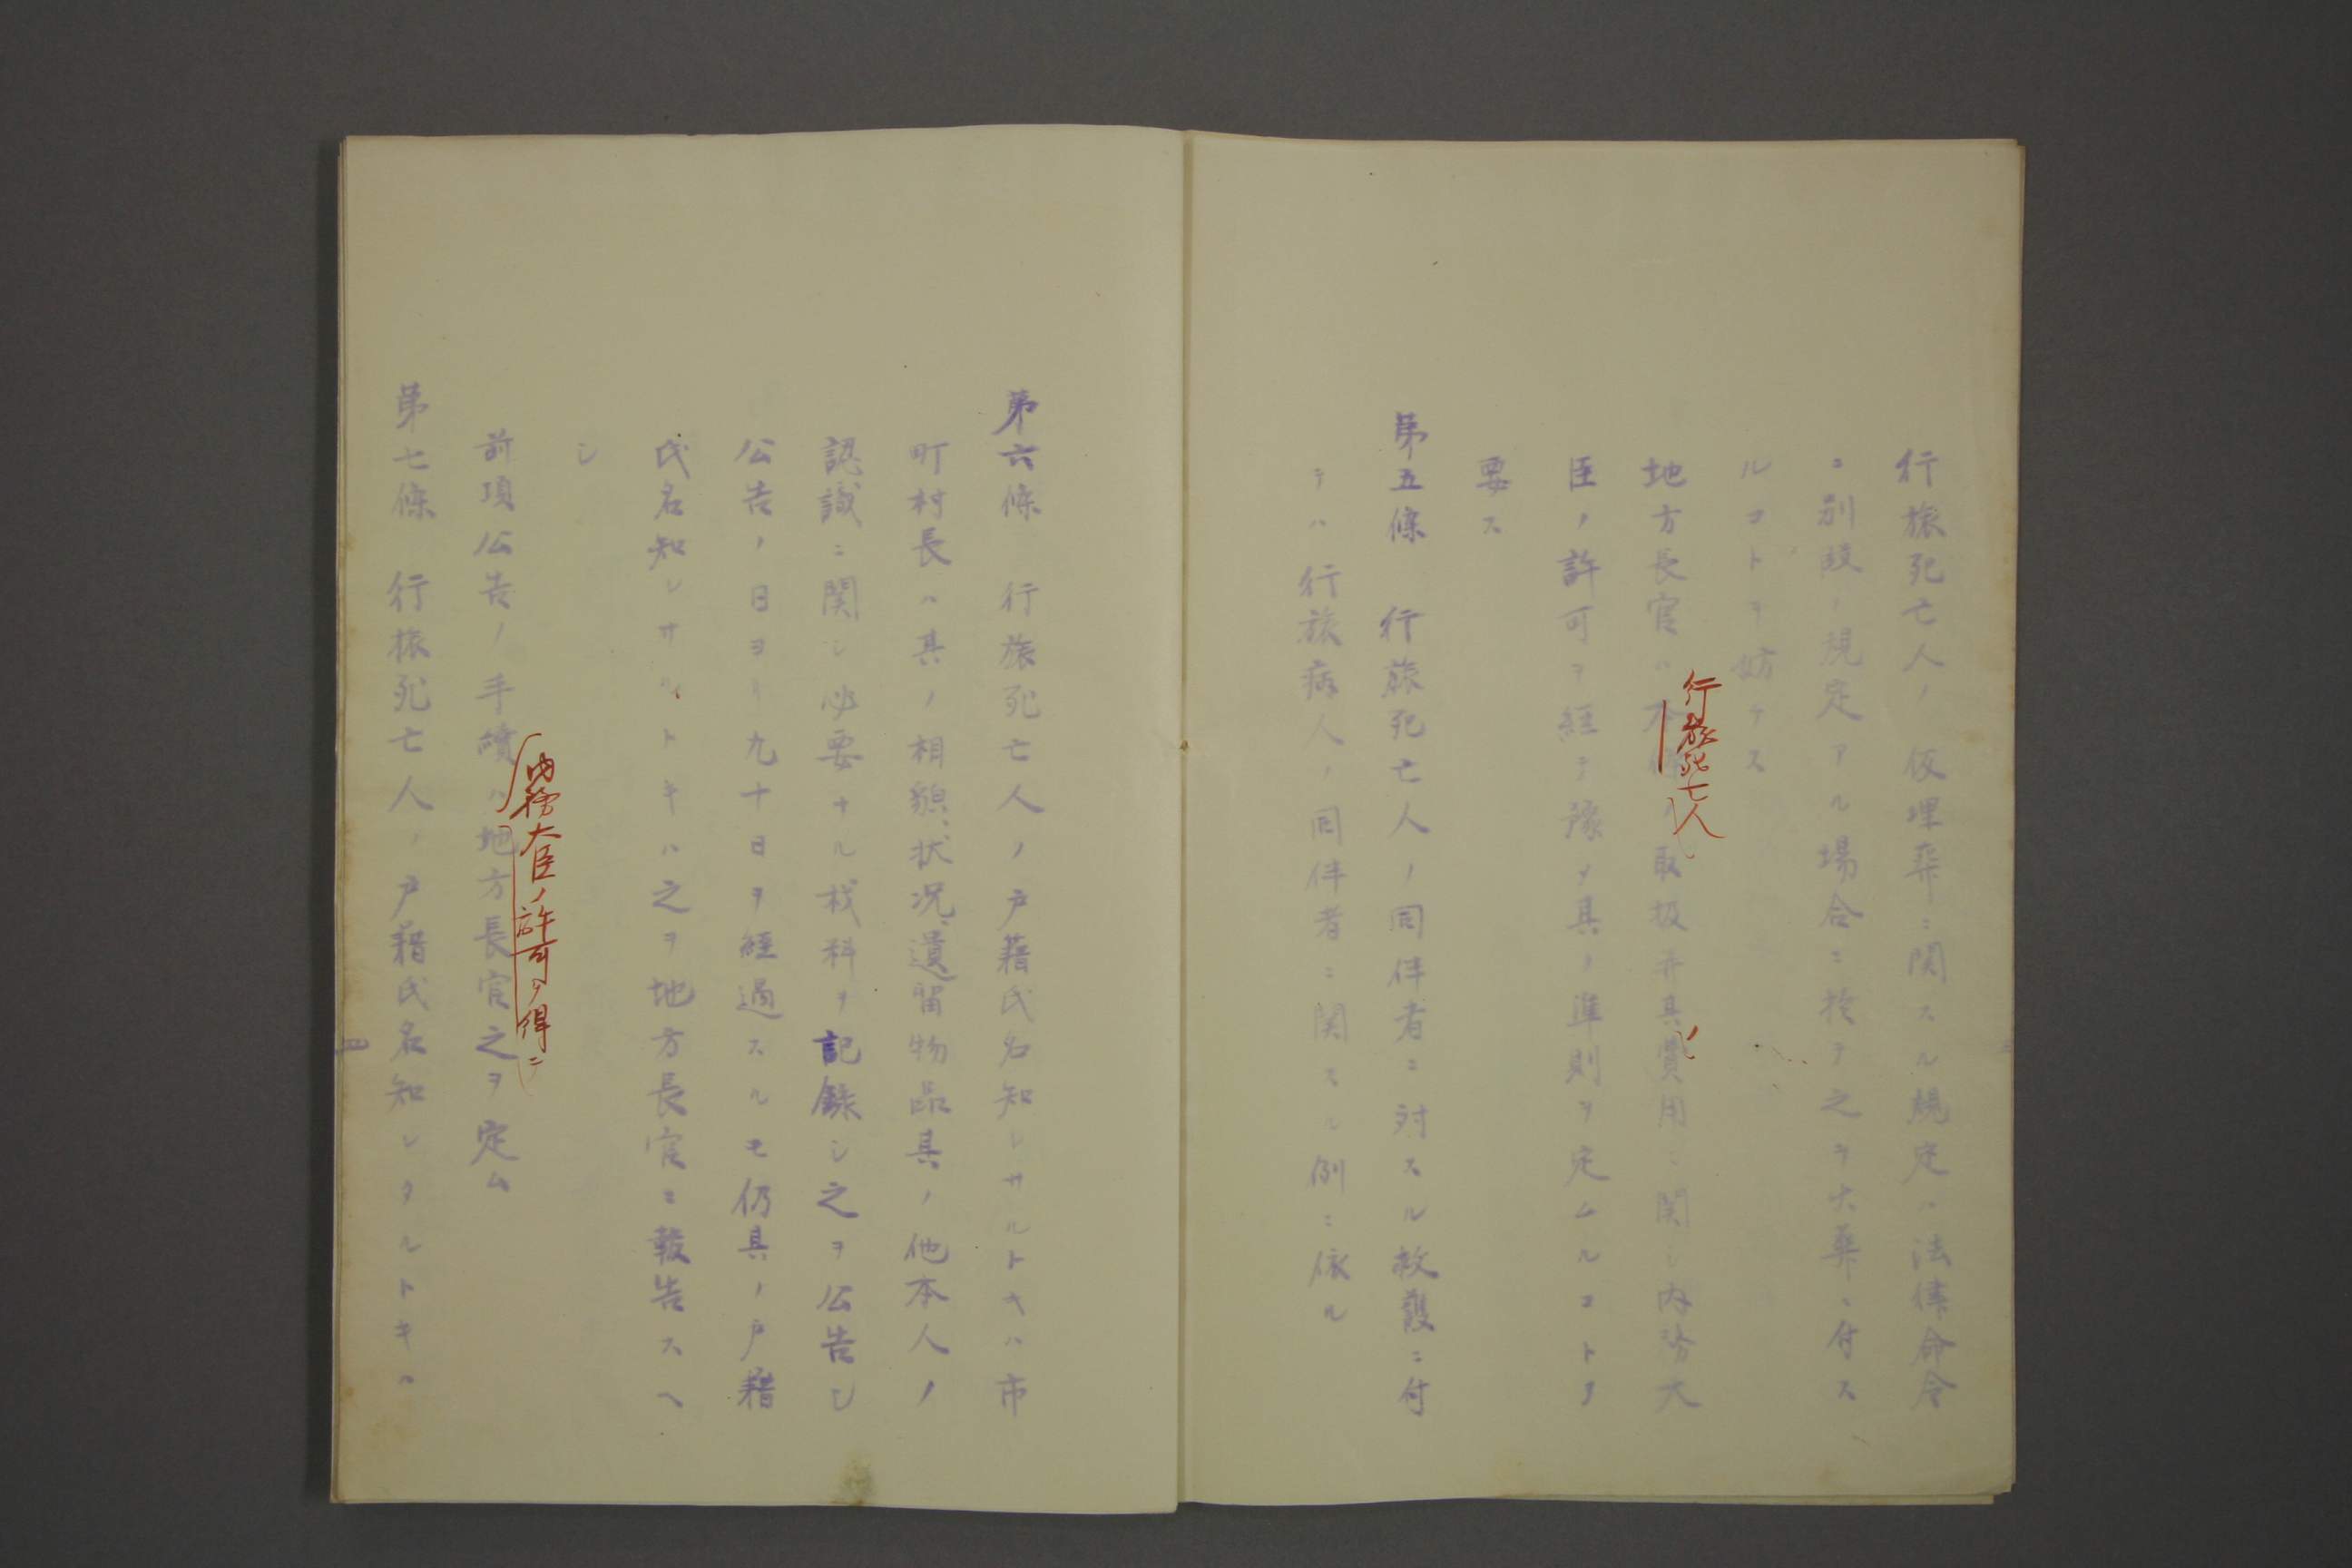 行旅死亡人ノ仮埋葬ニ関スル規定ハ法律命令
ニ別段ノ規定アル場合ニ於テ之ヲ火葬ニ付ス
ルコトヲ妨ケス
地方長官ハ本條ノ取扱并其費用ニ関シ内務大
行旅死亡人
ノ
臣ノ許可ヲ経テ豫メ其ノ準則ヲ定ムルコトヲ
要ス
第五條 行旅死亡人ノ同伴者ニ対スル救護ニ付
テハ行旅病人ノ同伴者ニ関スル例ニ依ル
第六條 行旅死亡人ノ戸籍氏名知レサルトキハ市
町村長ハ其ノ相貌、状況、遺留物品其ノ他本人ノ
認識ニ関シ必要ナル材料ヲ記録シ之ヲ公告シ
公告ノ日ヨリ九十日ヲ経過スルモ仍其ノ戸籍
氏名知レサルトキハ之ヲ地方長官ニ報告スヘ
シ
前項公告ノ手続ハ地方長官之ヲ定ム
内務大臣ノ許可ヲ得テ
第七條 行旅死亡人ノ戸籍氏名知レタルトキハ
四